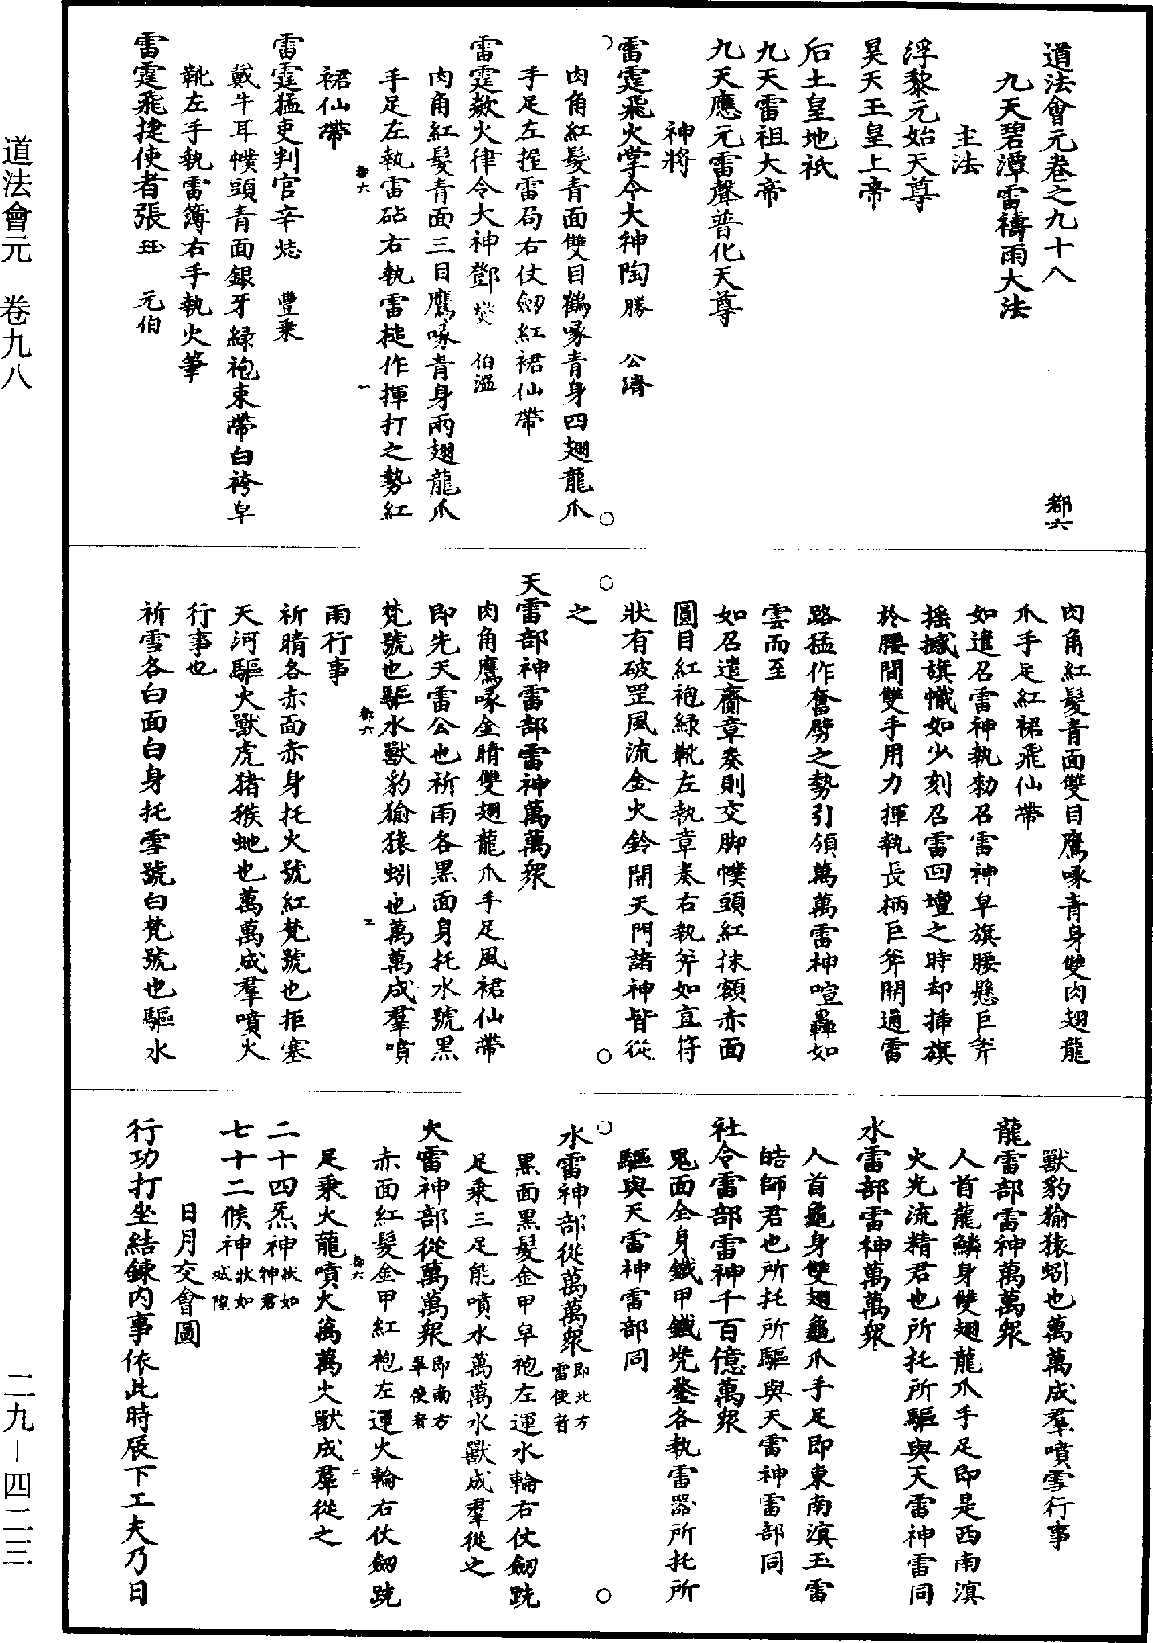 道法會元卷之九十八
都六
九天碧潭雷禱雨大法
主法
浮黎元始天尊
昊天玉皇上帝
后土皇地祇
九天雷祖大帝
九天應元雷聲普化天尊
神將
雷霆飛火掌令大神陶勝 公濟
肉角紅髮青面雙目鶴啄青身四翅龍爪
手足左握雷局右仗劒紅裙仙帶
雷霆欻火律令大神鄧燮 伯溫
肉角紅髮青面三目鷹啄青身兩翅龍爪
手足左執雷砧右執雷槌作揮打之勢紅
都六 一
裙仙帶
雷霆猛吏判官辛𢘿 豐乘
戴牛耳幞頭青面銀牙綠袍束帶白袴皁
靴左手執雷簿右手執火筆
雷霆飛捷使者張珏 元伯
肉角紅髮青面雙目鷹啄青身雙肉翅龍
爪手足紅裙飛仙帶
如遣召雷神執勑召雷神皁旗腰懸巨斧
搖撼旗幟如少刻召雷四壇之時却插旗
於腰間雙手用力揮執長柄巨斧開通雷
路猛作奮劈之勢引領萬萬雷神喧轟如
雲而至
如召遣齎章奏則交脚幞頭紅抹額赤面
圓目紅袍綠靴左執章奏右執斧如直符
狀有破罡風流金火鈴開天門諸神皆從
之
天雷部神雷部雷神萬萬衆
肉角鷹啄金睛雙翅龍爪手足風裙仙帶
即先天雷公也祈雨各黑面身托水號黑
梵號也驅水獸豹㺄猿蚓也萬萬成羣噴
都六 二
雨行事
祈晴各赤面赤身托火號紅梵號也拒塞
天河驅火獸虎猪猴虵也萬萬成羣噴火
行事也
祈雪各白面白身托雪號白梵號也驅水
獸豹㺄猿蚓也萬萬成羣噴雪行事
龍雷部雷神萬萬衆
人首龍鱗身雙翅龍爪手足即是西南滇
火光流精君也所托所驅與天雷神雷同
水雷部雷神萬萬衆
人首龜身雙翅龜爪手足即東南滇玉雷
皓師君也所托所驅與天雷神雷部同
社令雷部雷神千百億萬衆
鬼面全身鐵甲鐵兠鍪各執雷器所托所
驅與天雷神雷部同
水雷神部從萬萬衆即北方雷使者
黑面黑髮金甲皁袍左運水輪右仗劒跣
足乘三足能噴水萬萬水獸成羣從之
火雷神部從萬萬衆即南方旱使者
赤面紅髮金甲紅袍左運火輪右仗劒跣
都六 三
足乘火龍噴火萬萬火獸成羣從之
二十四炁神狀如神君
七十二候神狀如城隍
日月交會圖
行功打坐結鍊內事依此時辰下工夫乃日
道法會元 卷九八
二九－四二三